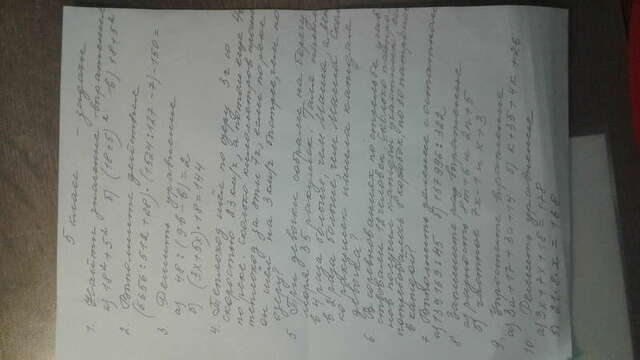 5 класс - задачи
1. Найти значение выражения
а) 18²+5² б) (18+5)² в) 18+5²
2. Выполните действия
(6656:512+28)·(1524:127-7)-150=
3. Решить уравнение
а) 48:(9в-в)=2
б) (3х+5х)·18=144
4. Теплоход шёл по озеру 3ч со
скоростью 23км/ч, а потом ещё 4ч
по реке. Сколько километров прошёл
теплоход за эти 7ч, если по реке
он шёл на 3км/ч быстрее, чем по
озеру?
5. Три девочки собрали на берегу
моря 35 ракушек. Галя нашла
в 4 раза больше, чем Маша, а
в 2 раза больше, чем Маша. Сколь
ко ракушек нашла каждая
девочка?
6. В соревнованиях по стрельбе
12 человек. Сколько
получил каждый участник, если
потребовалось 8 коробок, по 30 патронов
в каждой?
7. Выполнить деление с остатком
а) 139169:45 б) 157996:322
8. Запишите выражение
а) разность 8m+6 и 2n+5
б) частное 7х-1 и х+3
9. Упростите выражение
а) 3а+17+3а+14 б) к+35+4к+26
10. Решить уравнение
а) 3х+7х+18=178
б) 21·8·х=168